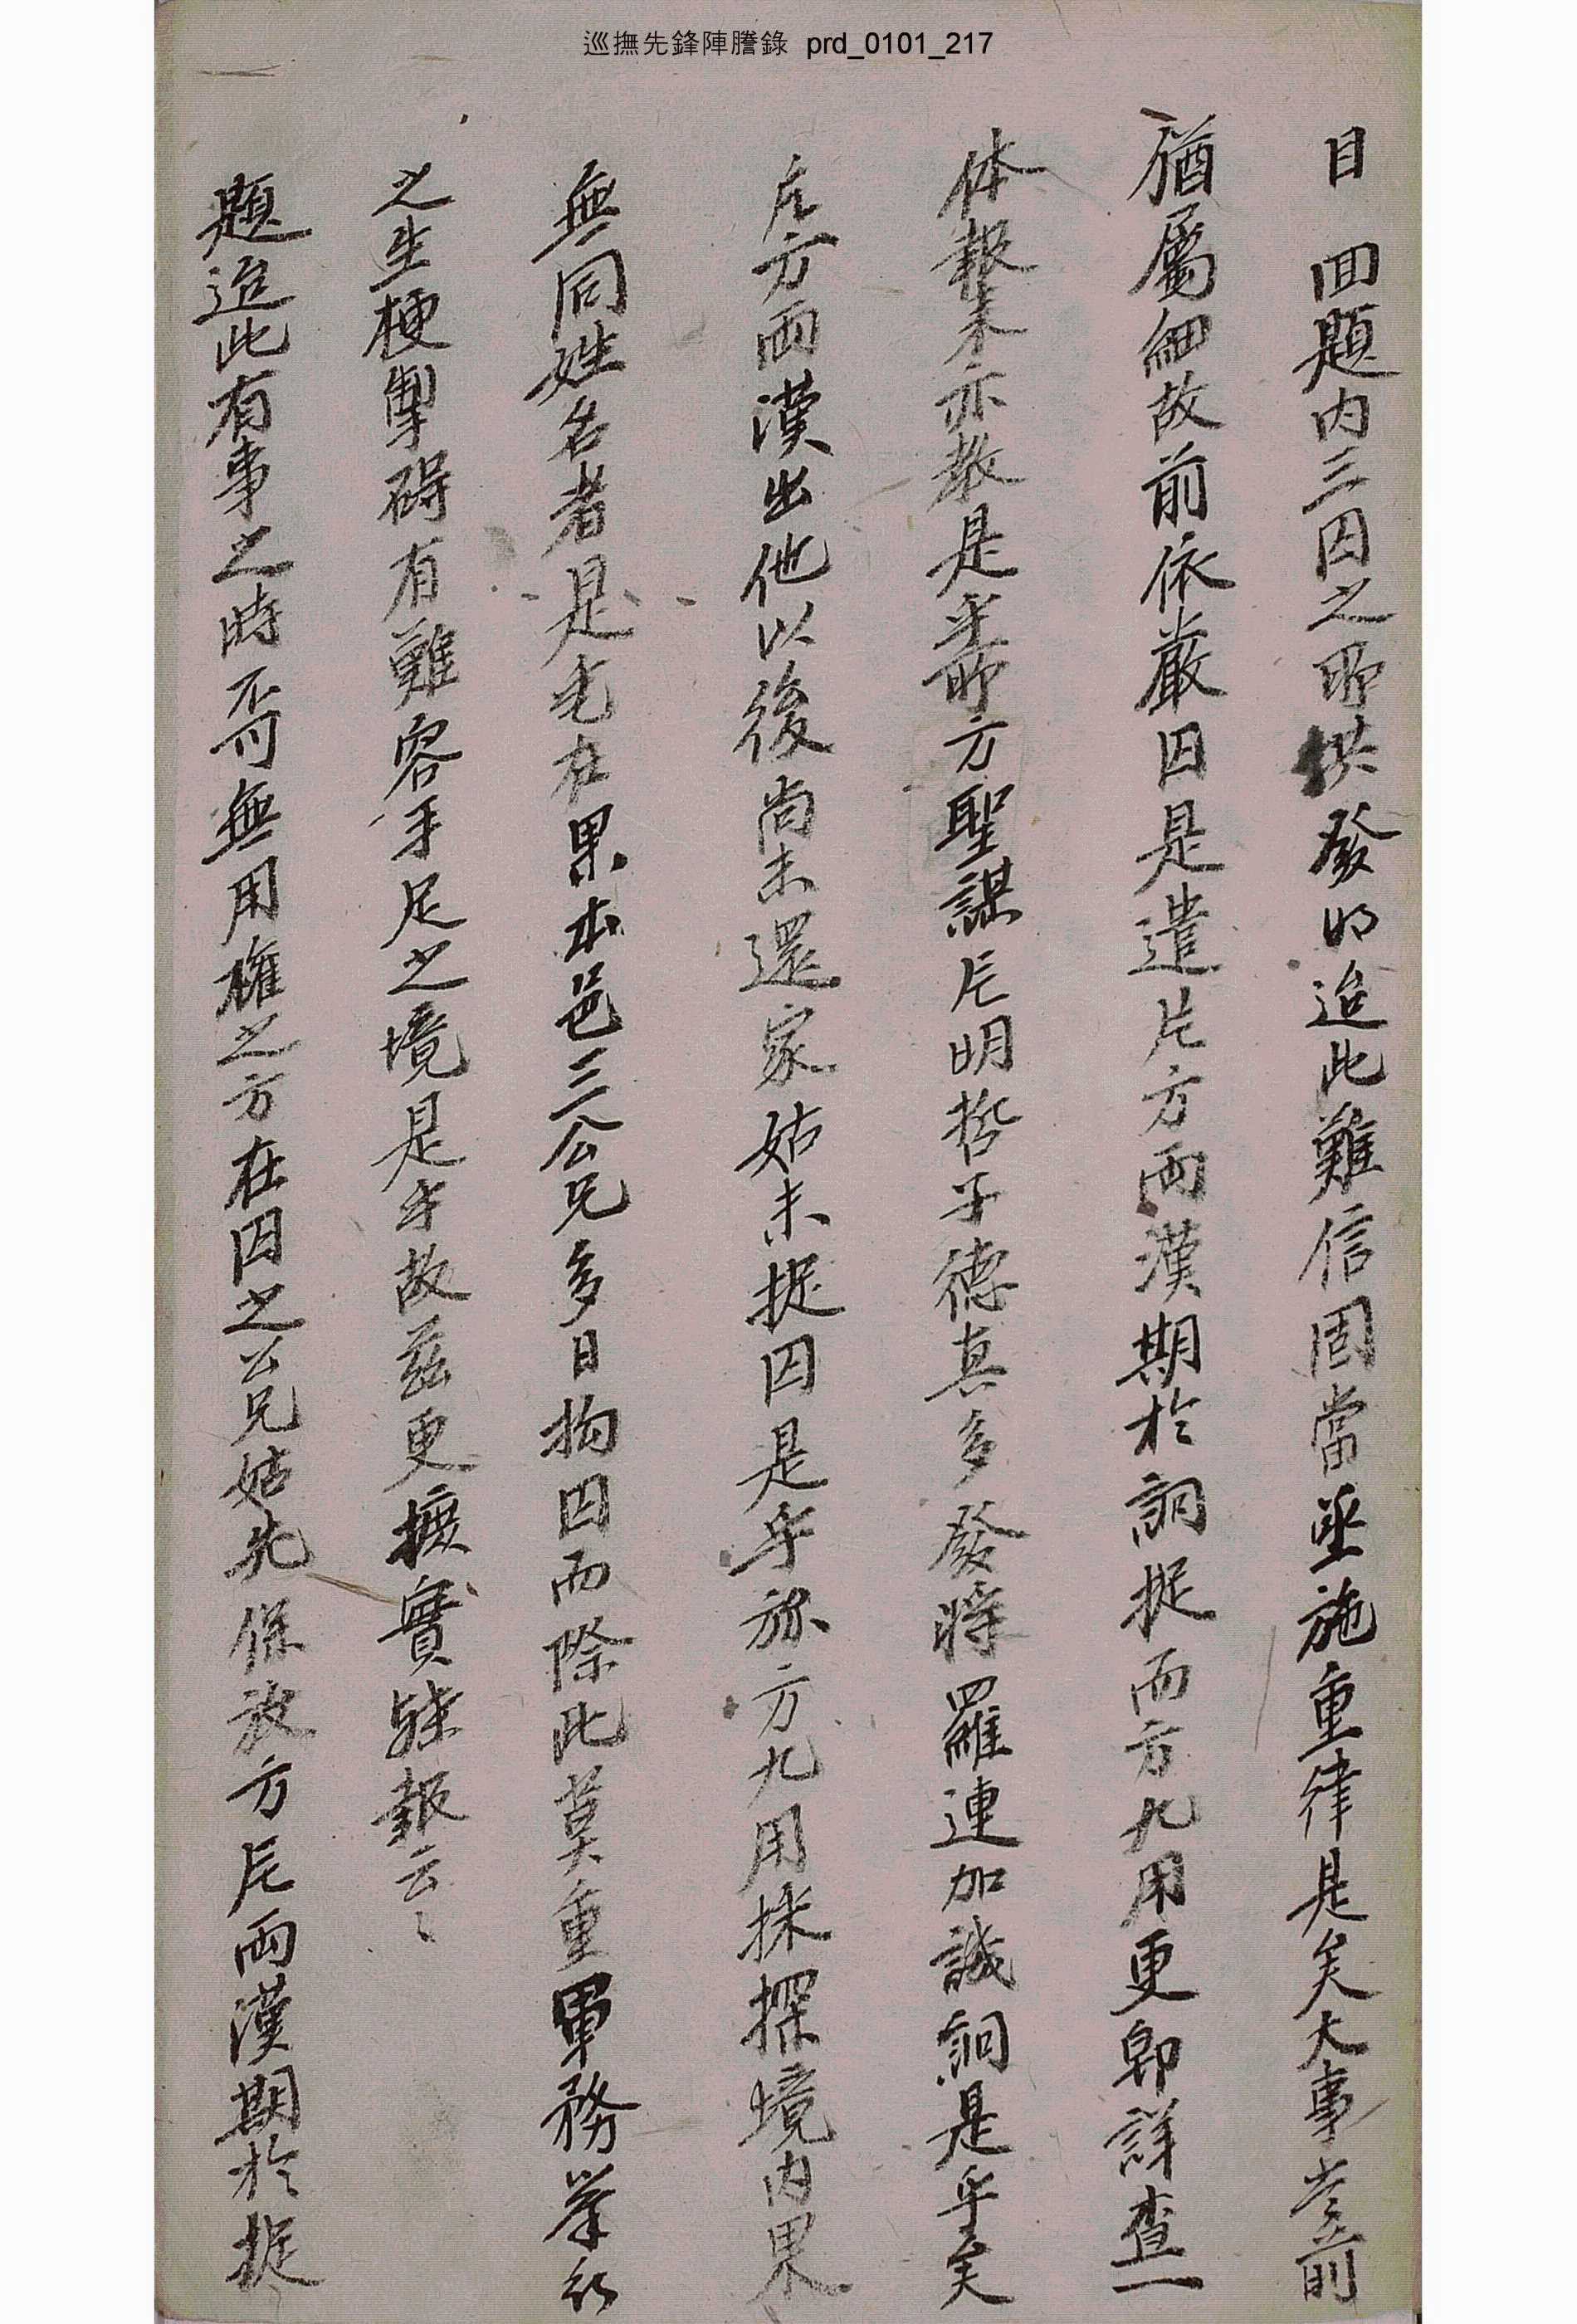 巡撫先鋒陣謄錄 prd_0101_217
目 回題内三囚之所供發明迨此難信固當亟施重律是矣大事当前
猶屬細故前依嚴囚是遣片方兩漢期於詗捉而方九用更卽詳查一
体報來亦教是乎所方聖謀片明哲子德真多發將羅連加譏詗是乎矣
片方兩漢出他以後尚未還家姑未捉囚是乎旀方九用採探境内果
無同姓名者是乎在果本邑三公兄多日拘囚而際此莫重軍務擧行
之生梗掣碍有難容手足之境是乎故玆更據實牒報云〻
題迨此有事之時不可無用權之方在囚之公兄姑先保放方片兩漢期於捉